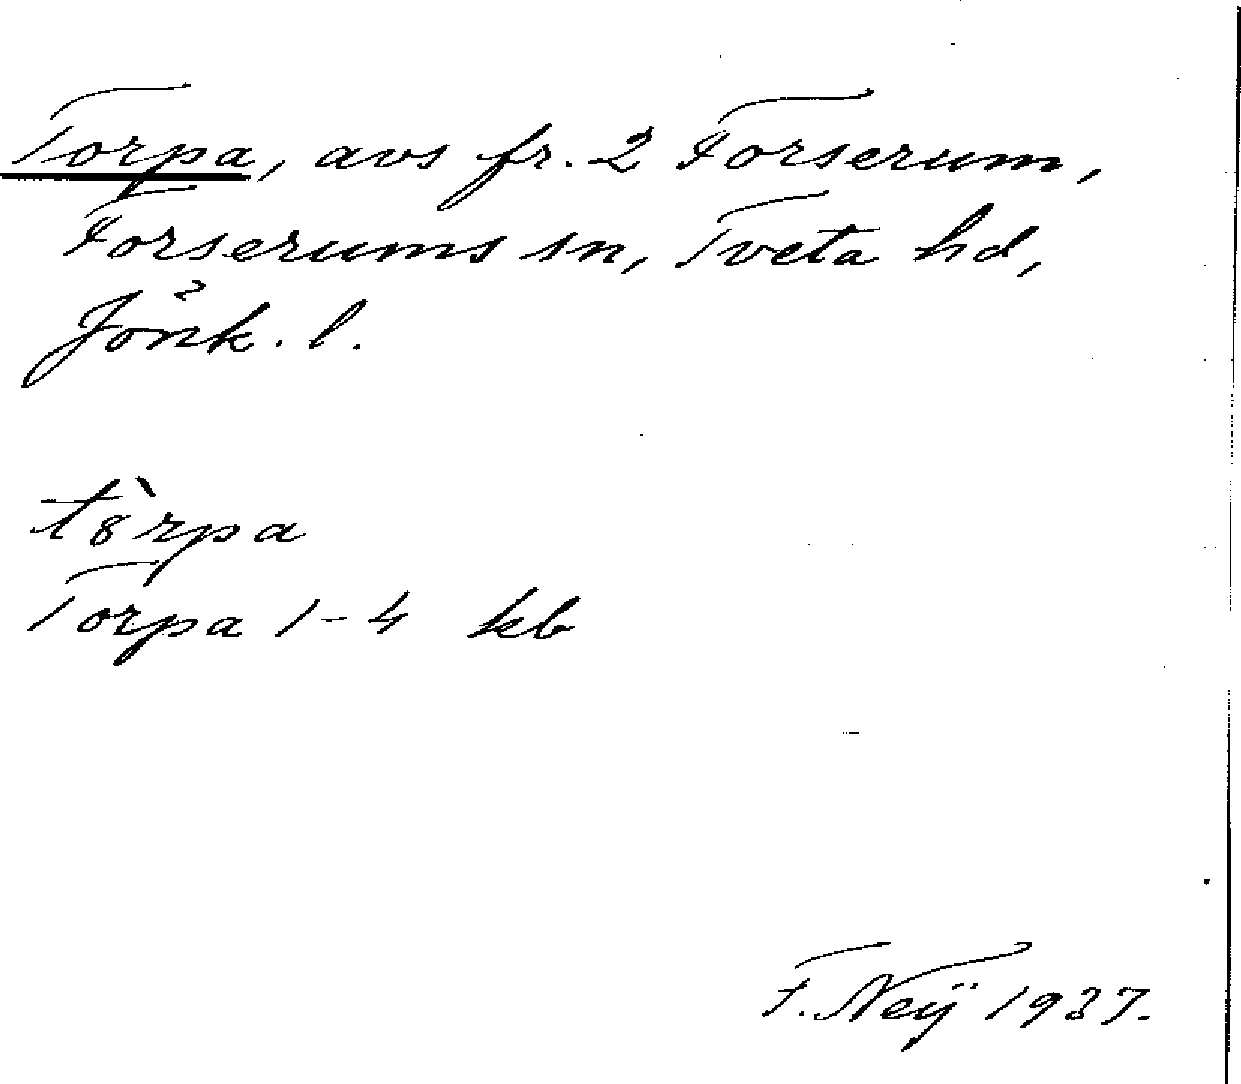 Torpa, avs fr. 2 Forserum,
Forserums sn, Tveta hd,
Jönk. l.
tȣ̀rpa
Torpa 1-4 kb
F. Neÿ 1937.